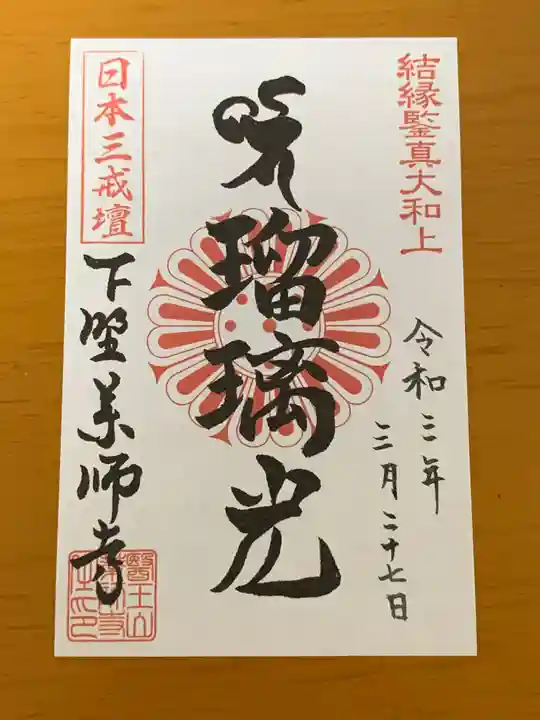 結縁鑒真大和上
令和三年
三月二十七日
瑠璃光
日本三戒壇
下野薬師寺